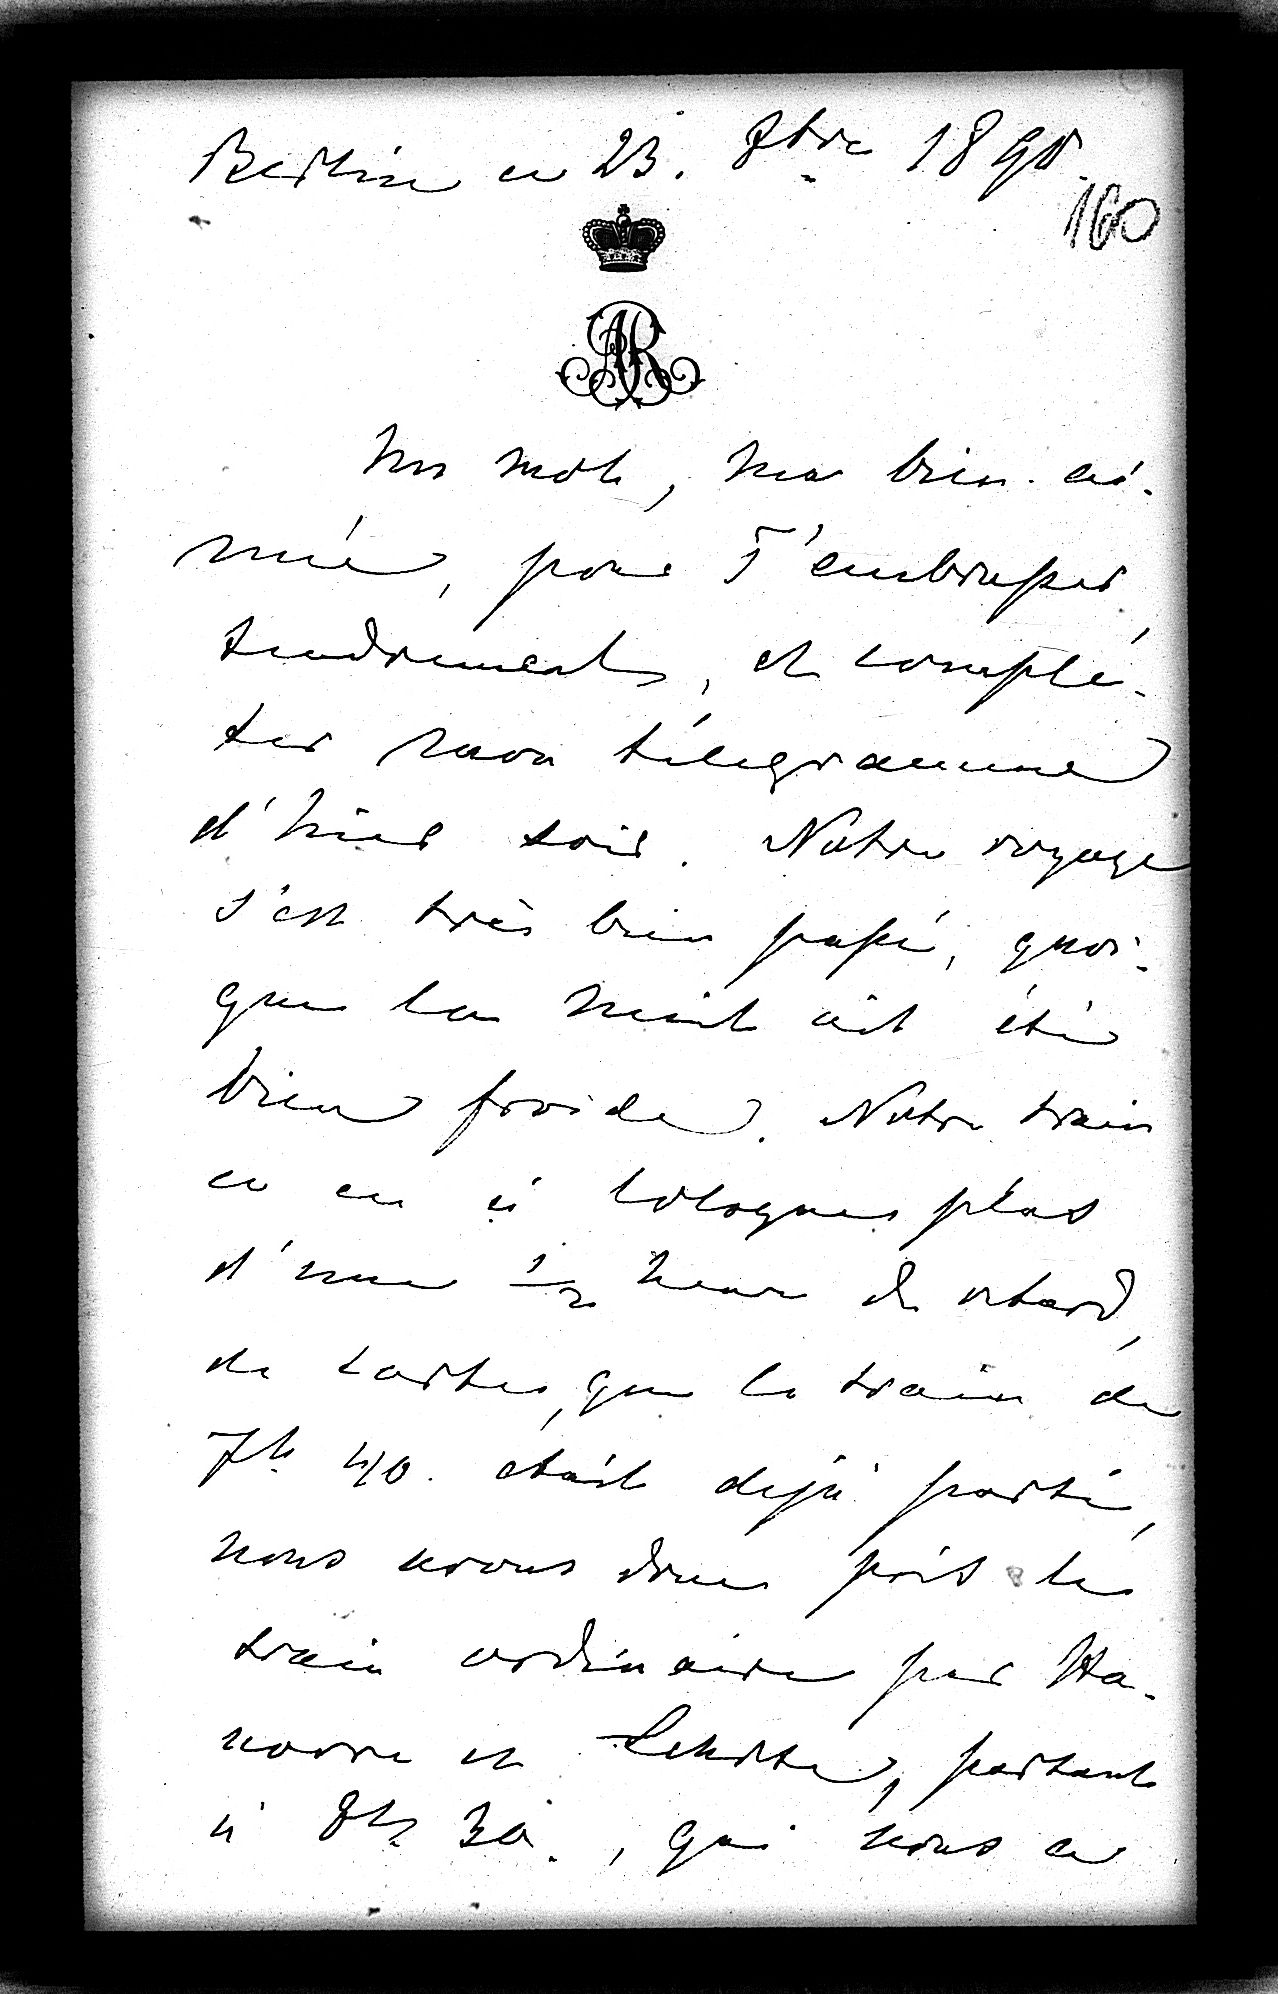 Berlin ce 23. 8bre 1890.
160
AR
Un mot, ma bien-ai-
mée, pour T'embrasser
tendrement, et complé-
ter mon télégramme
d'hier soir. Notre voyage
s'est très bien passé, quoi-
que la nuit ait été
bien froide. Notre train
a eu à Cologne plus
d'une 1/2 heure de retard,
de sorte, que le train de
7h 40. était déjà parti,
nous avons donc pris le
train ordinaire par Ha-
novre et Lehrte, partant
à 8h 30., qui nous a